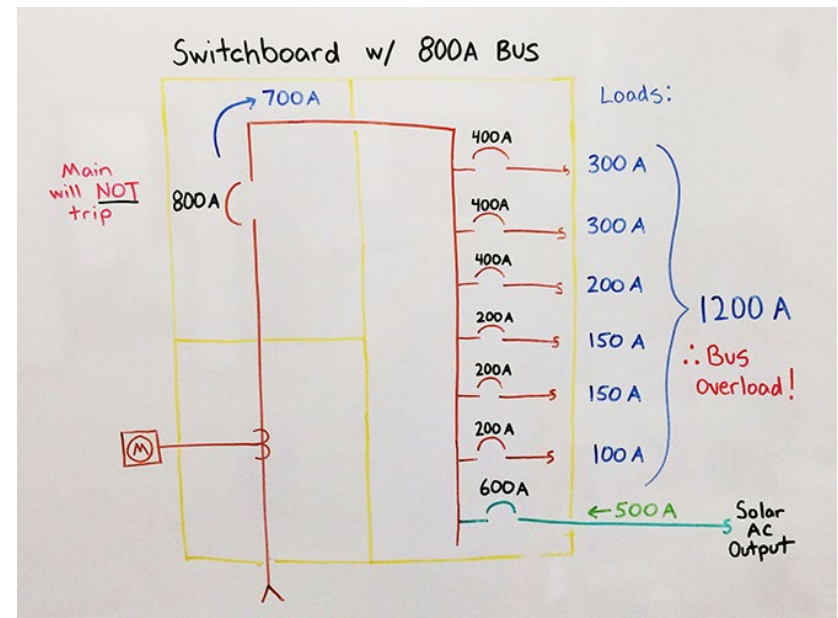 Switchboard w/ 800A Bus
700A
Loads:
Main
will NOT
trip
800A
400A
300 A
400A
300 A
400A
200 A
200A
150 A
200A
150 A
200A
100 A
1200 A
∴ Bus
Overload!
M
600A
←500A
Solar
AC
Output